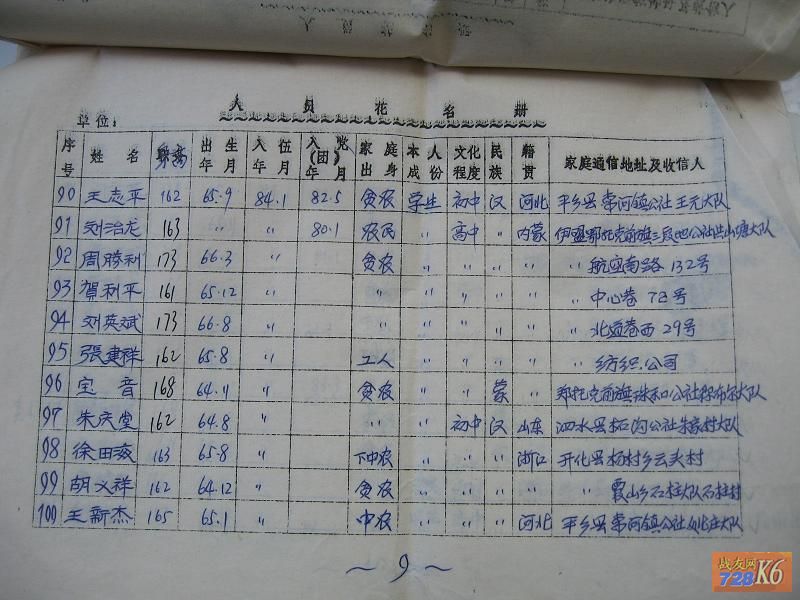 人员花名册
单位：
序号 姓名 身高 出生年月 入伍年月 入党(团)年月 家庭出身 本人成份 文化程度 民族 籍贯 家庭通信地址及收信人
90 王志平 162 65.9 84.1 82.5 贫农 学生 初中 汉 河北 平乡县常河镇公社王元大队
91 刘治龙 163 〃 〃 80.1 农民 〃 高中 〃 内蒙 伊盟鄂托克前旗三段地公社大队
92 周勝利 173 66.3 〃 贫农 〃 〃 〃 〃 〃 航空南路132号
93 賀利平 161 65.12 〃 〃 〃 〃 〃 〃 〃 中心巷72号
94 刘英斌 173 66.8 〃 〃 〃 〃 〃 〃 〃 北巷西29号
95 張建祥 162 65.8 〃 工人 〃 〃 〃 〃 〃 纺织公司
96 宝音 168 64.11 〃 贫农 〃 〃 蒙 〃 鄂托克前旗珠和公社大队
97 朱庆堂 162 64.8 〃 〃 〃 初中 汉 山东 泗水县柘沟公社朱家村大队
98 徐田 163 65.8 〃 下中农 〃 〃 〃 浙江 开化县杨村乡云头村
99 胡义祥 162 64.12 〃 贫农 〃 〃 〃 〃 〃 霞山乡石柱大队石柱村
100 王新杰 165 65.1 〃 中农 〃 〃 〃 河北 平乡县常河镇公社庄大队
～9～
战友网
728K6